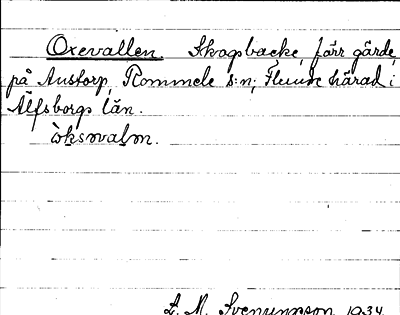 Oxevallen. Skogsbacke, förr gärde,
på Austorp, Rommele s:n, Flundre härad i
Älfsborgs län.
òksvaln.
L. M. Svenungsson 1934